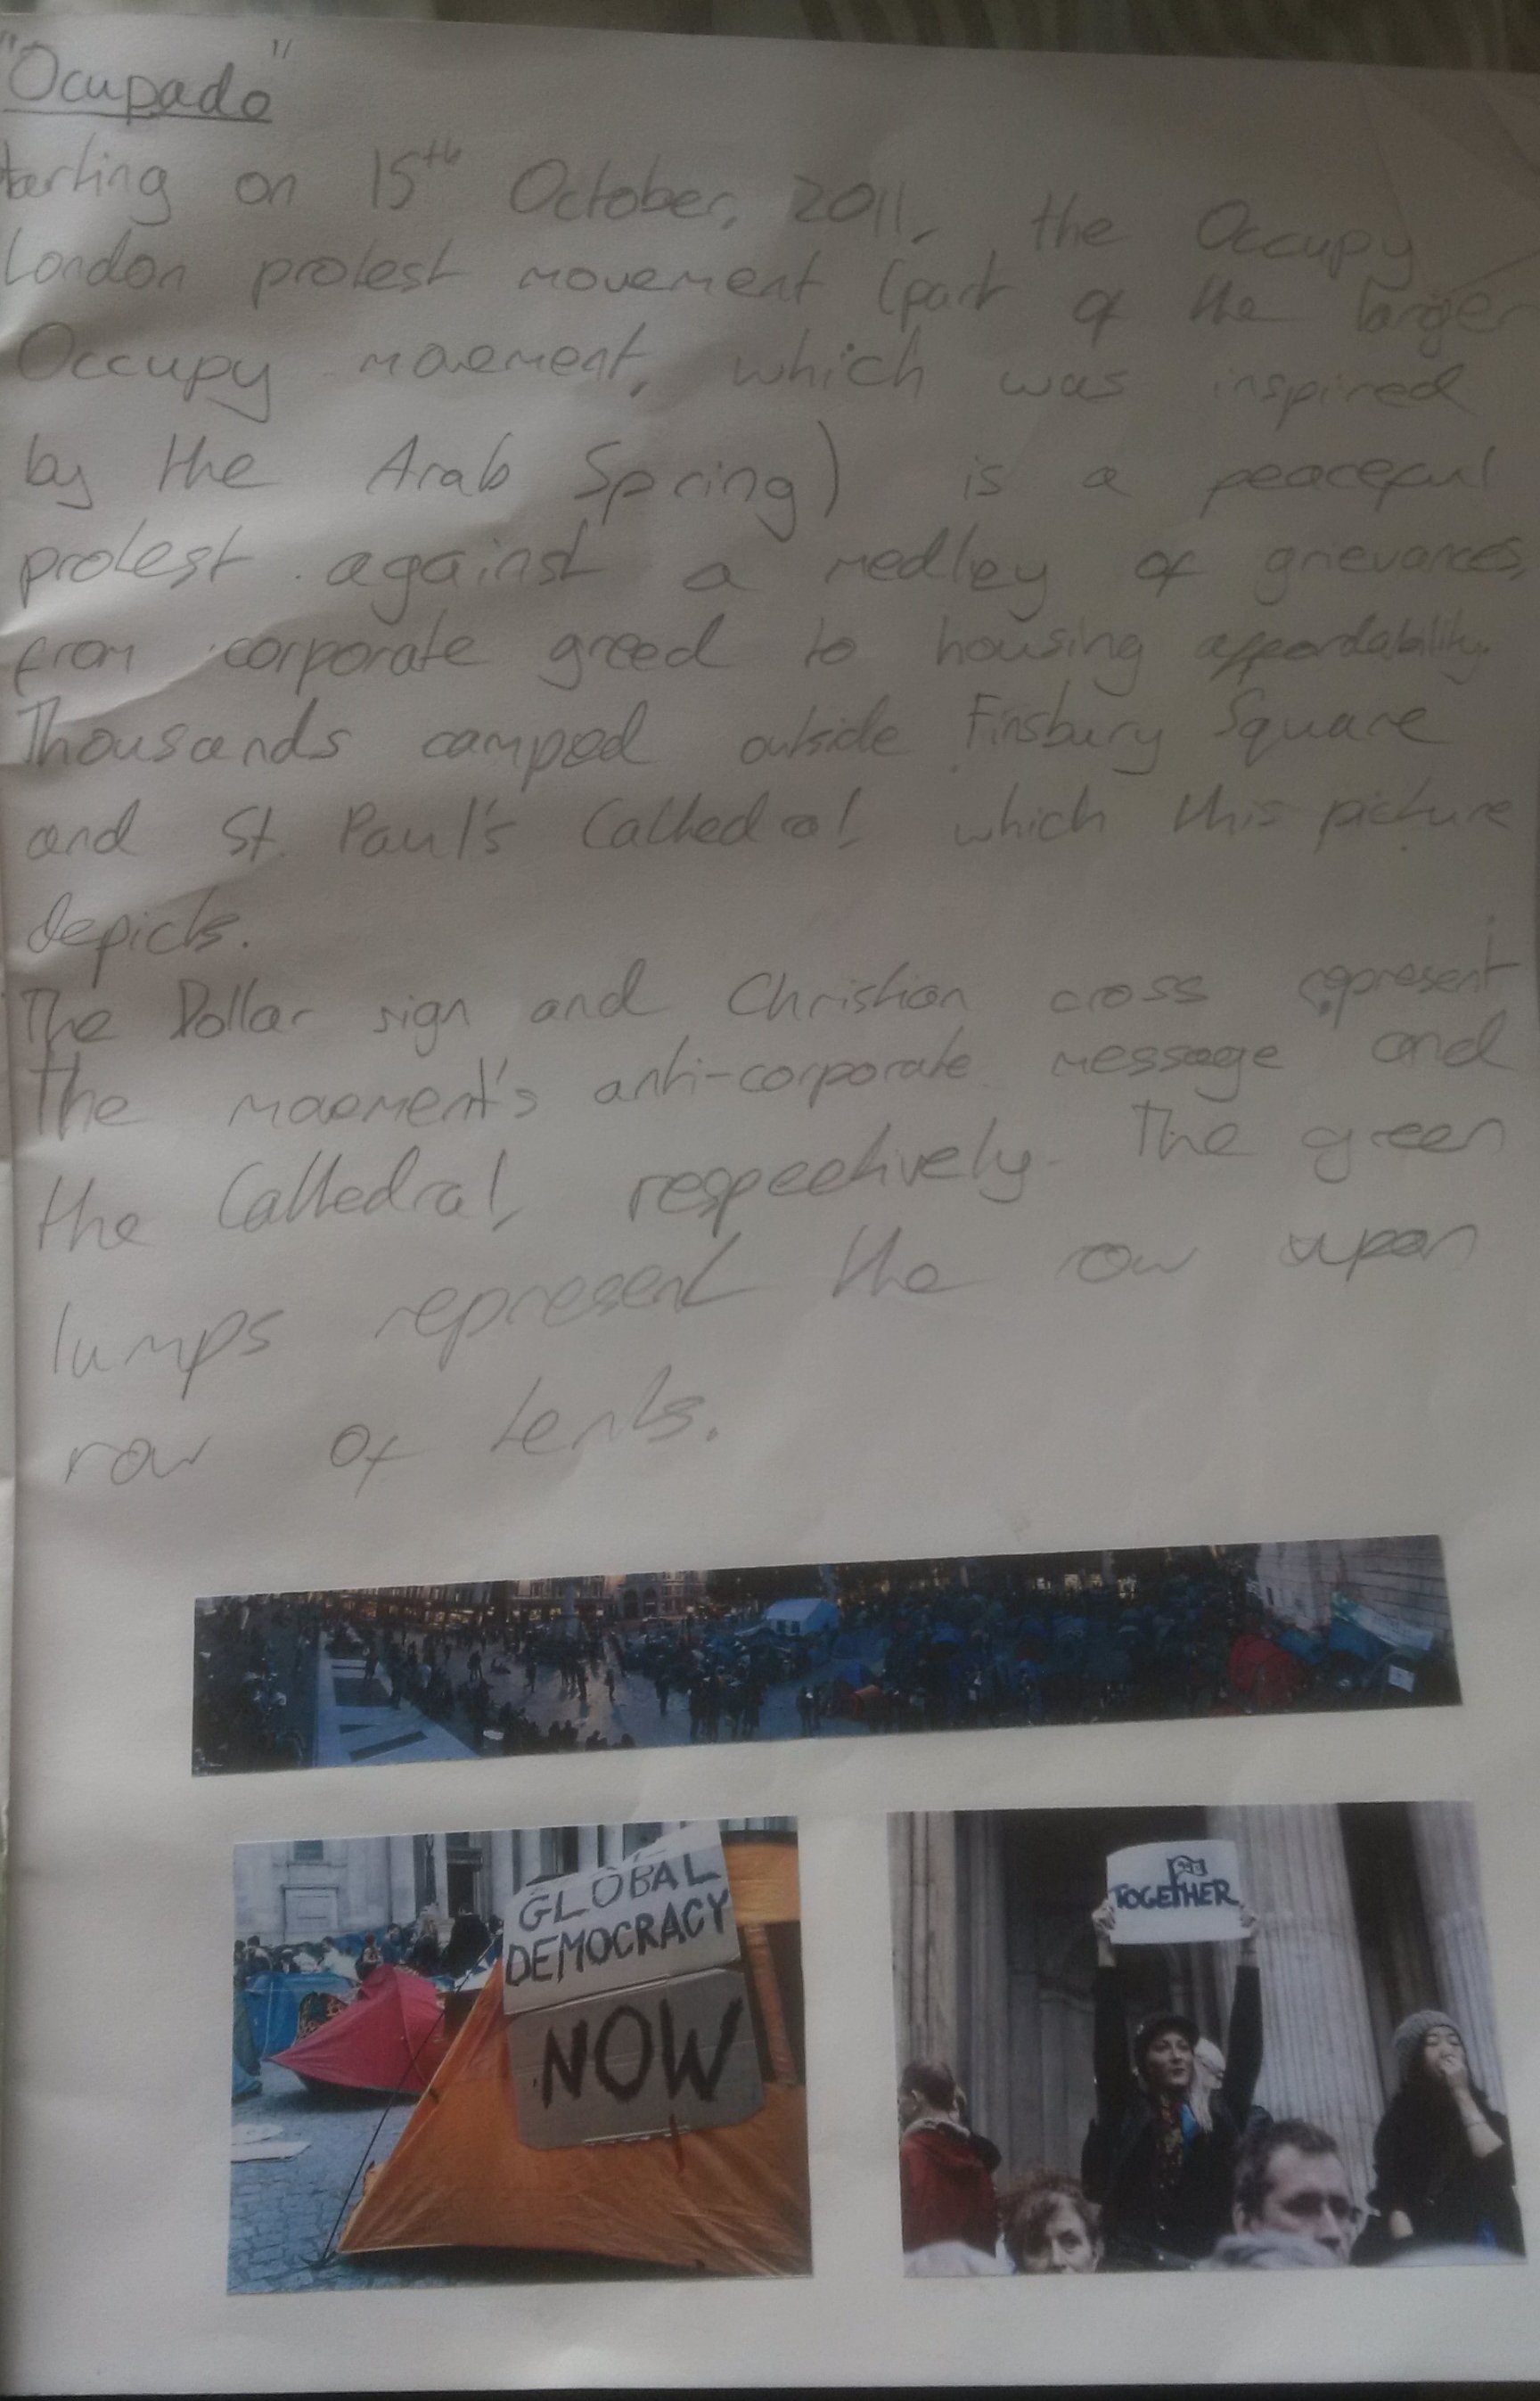 "Ocupado"
tarting on 15th October, 2011, the Occupy
London protest movement (part of the larger
Occupy movement, which was inspired
by the Arab Spring) is a peaceful
protest against a medley of grievances,
from corporate greed to housing affordability.
Thousands camped outside Finsbury Square
and St. Paul's Cathedral, which this picture
depicts.
The Dollar sign and Christian cross represent
the movement's anti-corporate message and
the Cathedral, respectively. The green
lumps represent the row upon
row of tents.
GLOBAL
DEMOCRACY
NOW
TOGETHER